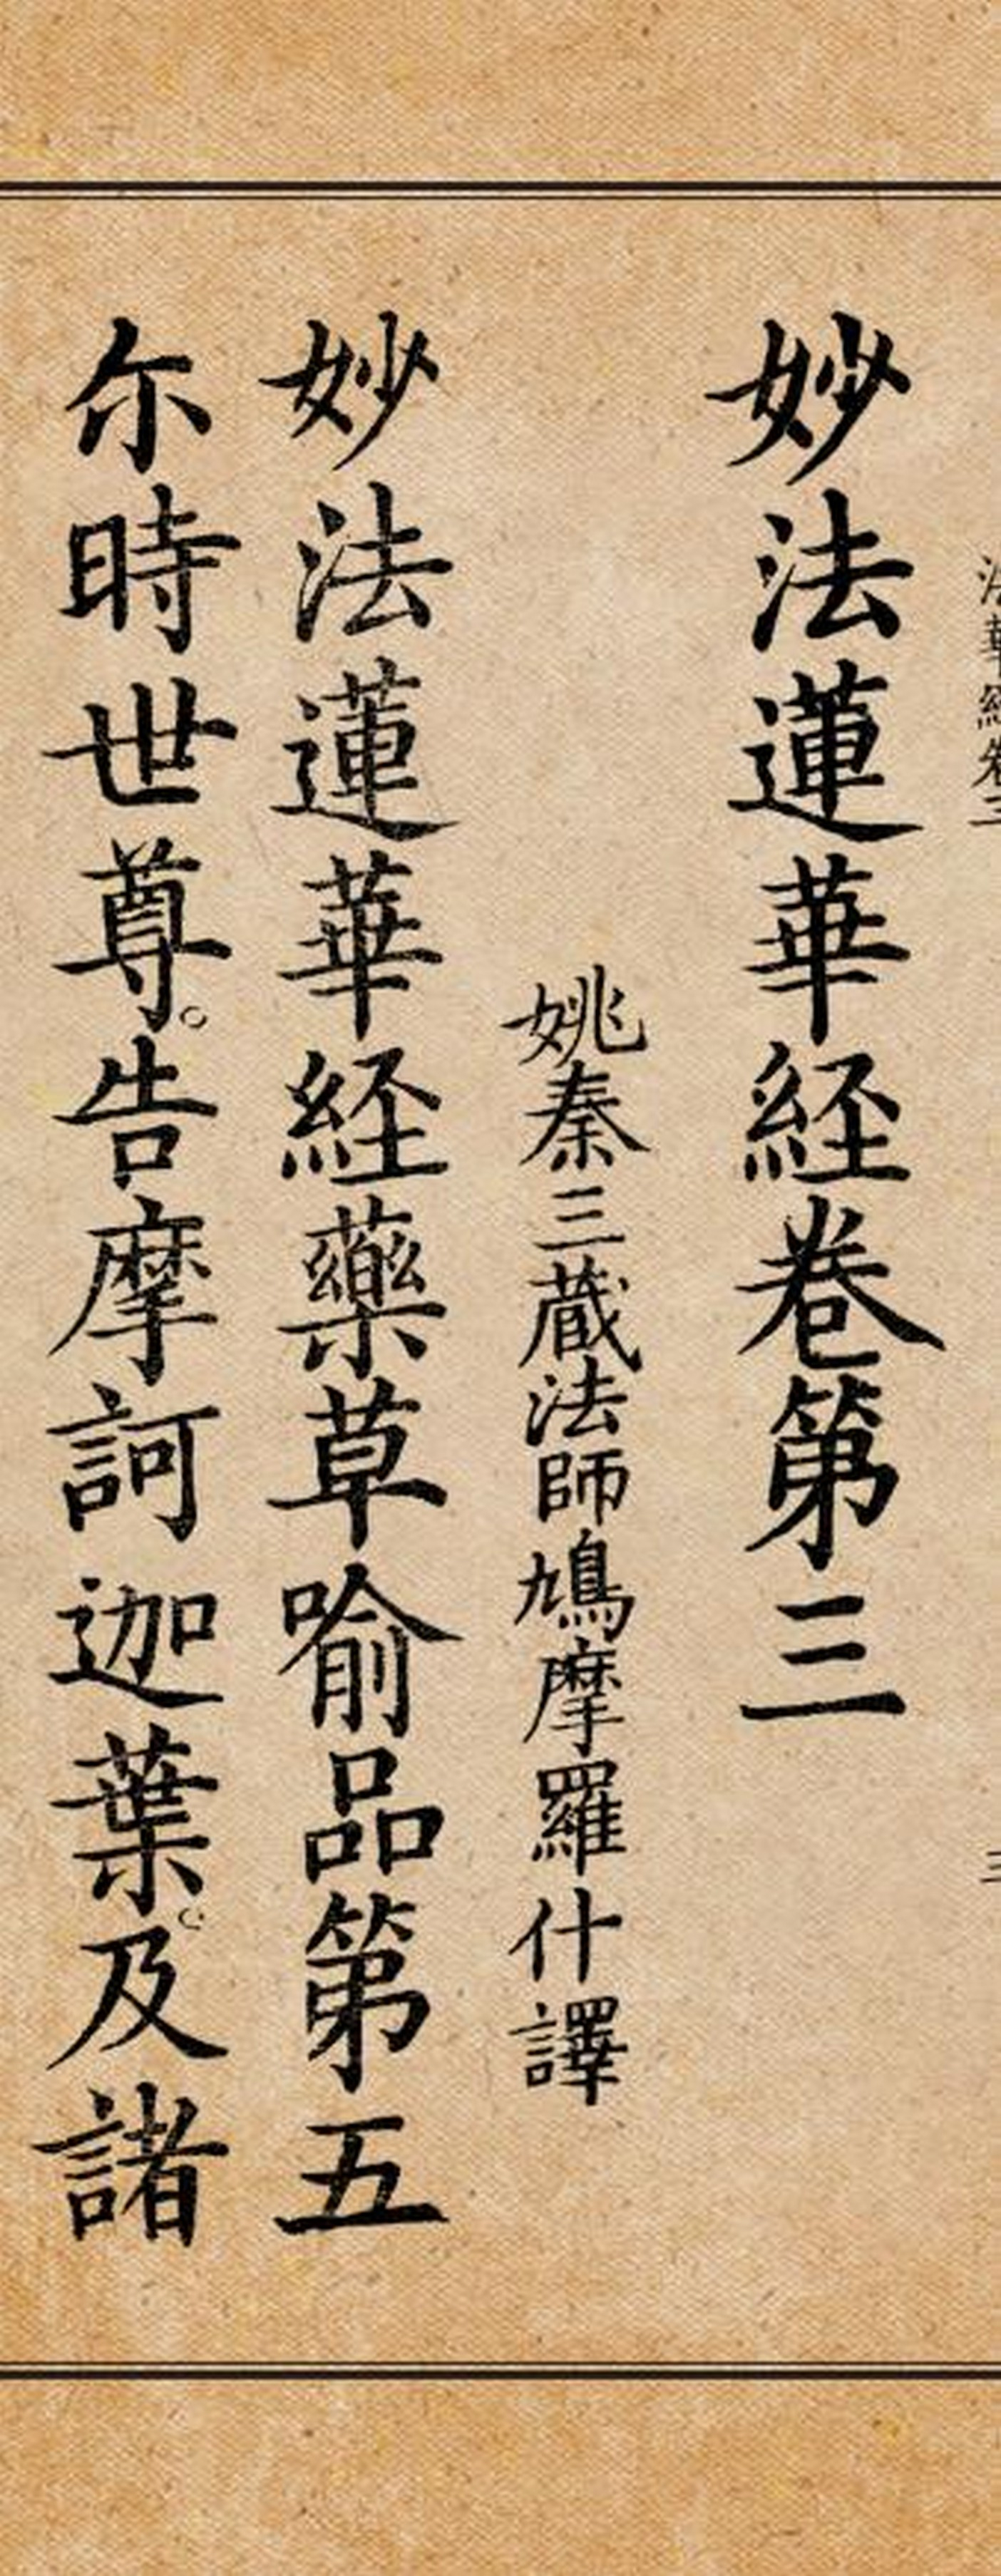 法華經卷三 三
妙法蓮華経卷第三
姚秦三蔵法師鳩摩羅什譯
妙法蓮華経藥草喻品第五
尒時世尊。告摩訶迦葉。及諸